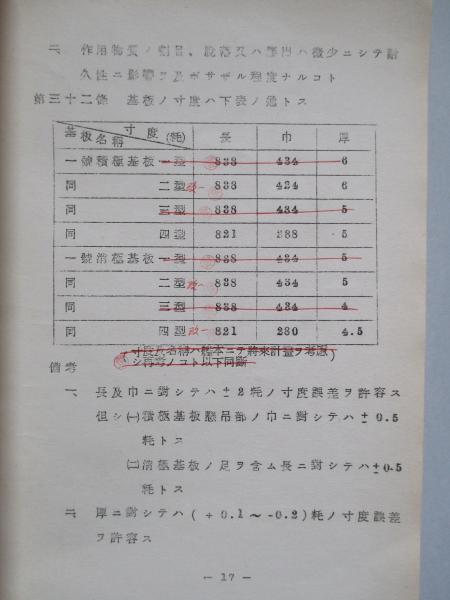 二、作用物質ノ剝目、脫落又ハ膨門ハ微少ニシテ耐
久性ニ影響ヲ及ボサザル程度ナルコト
第三十二條 基板ノ寸度ハ下表ノ通トス
基板名稱 寸度(耗) 長 巾 厚
一號積極基板一型 838 434 6
同 二型 改一 838 424 6
同 三型 838 434 5
同 四型 821 288 5
一號消極基板一型 838 434 5
同 二型 改一 838 434 5
同 三型 838 424 4
同 四型 改一 821 280 4.5
(寸度及名稱ハ艦本ニテ將來計量ヲ考慮
シ再考ノコト以下同斷)
備考
一、長及巾ニ對シテハ±2耗ノ寸度誤差ヲ許容ス
但シ(一)積極基板懸吊部ノ巾ニ對シテハ±0.5
耗トス
(二)消極基板ノ足ヲ含ム長ニ對シテハ±0.5
耗トス
二、厚ニ對シテハ(+0.1～-0.2)耗ノ寸度誤差
ヲ許容ス
- 17 -